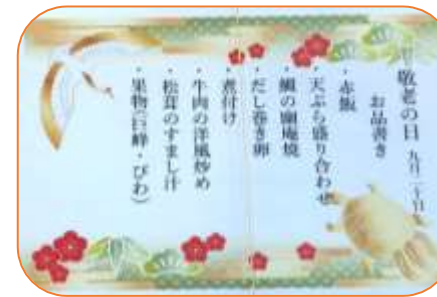 敬老の日 九月二十日
お品書き
・赤飯
・天ぷら盛り合わせ
・鯛の幽庵焼
・だし巻き卵
・煮付け
・牛肉の洋風炒め
・松茸のすまし汁
・果物(巨峰・びわ)